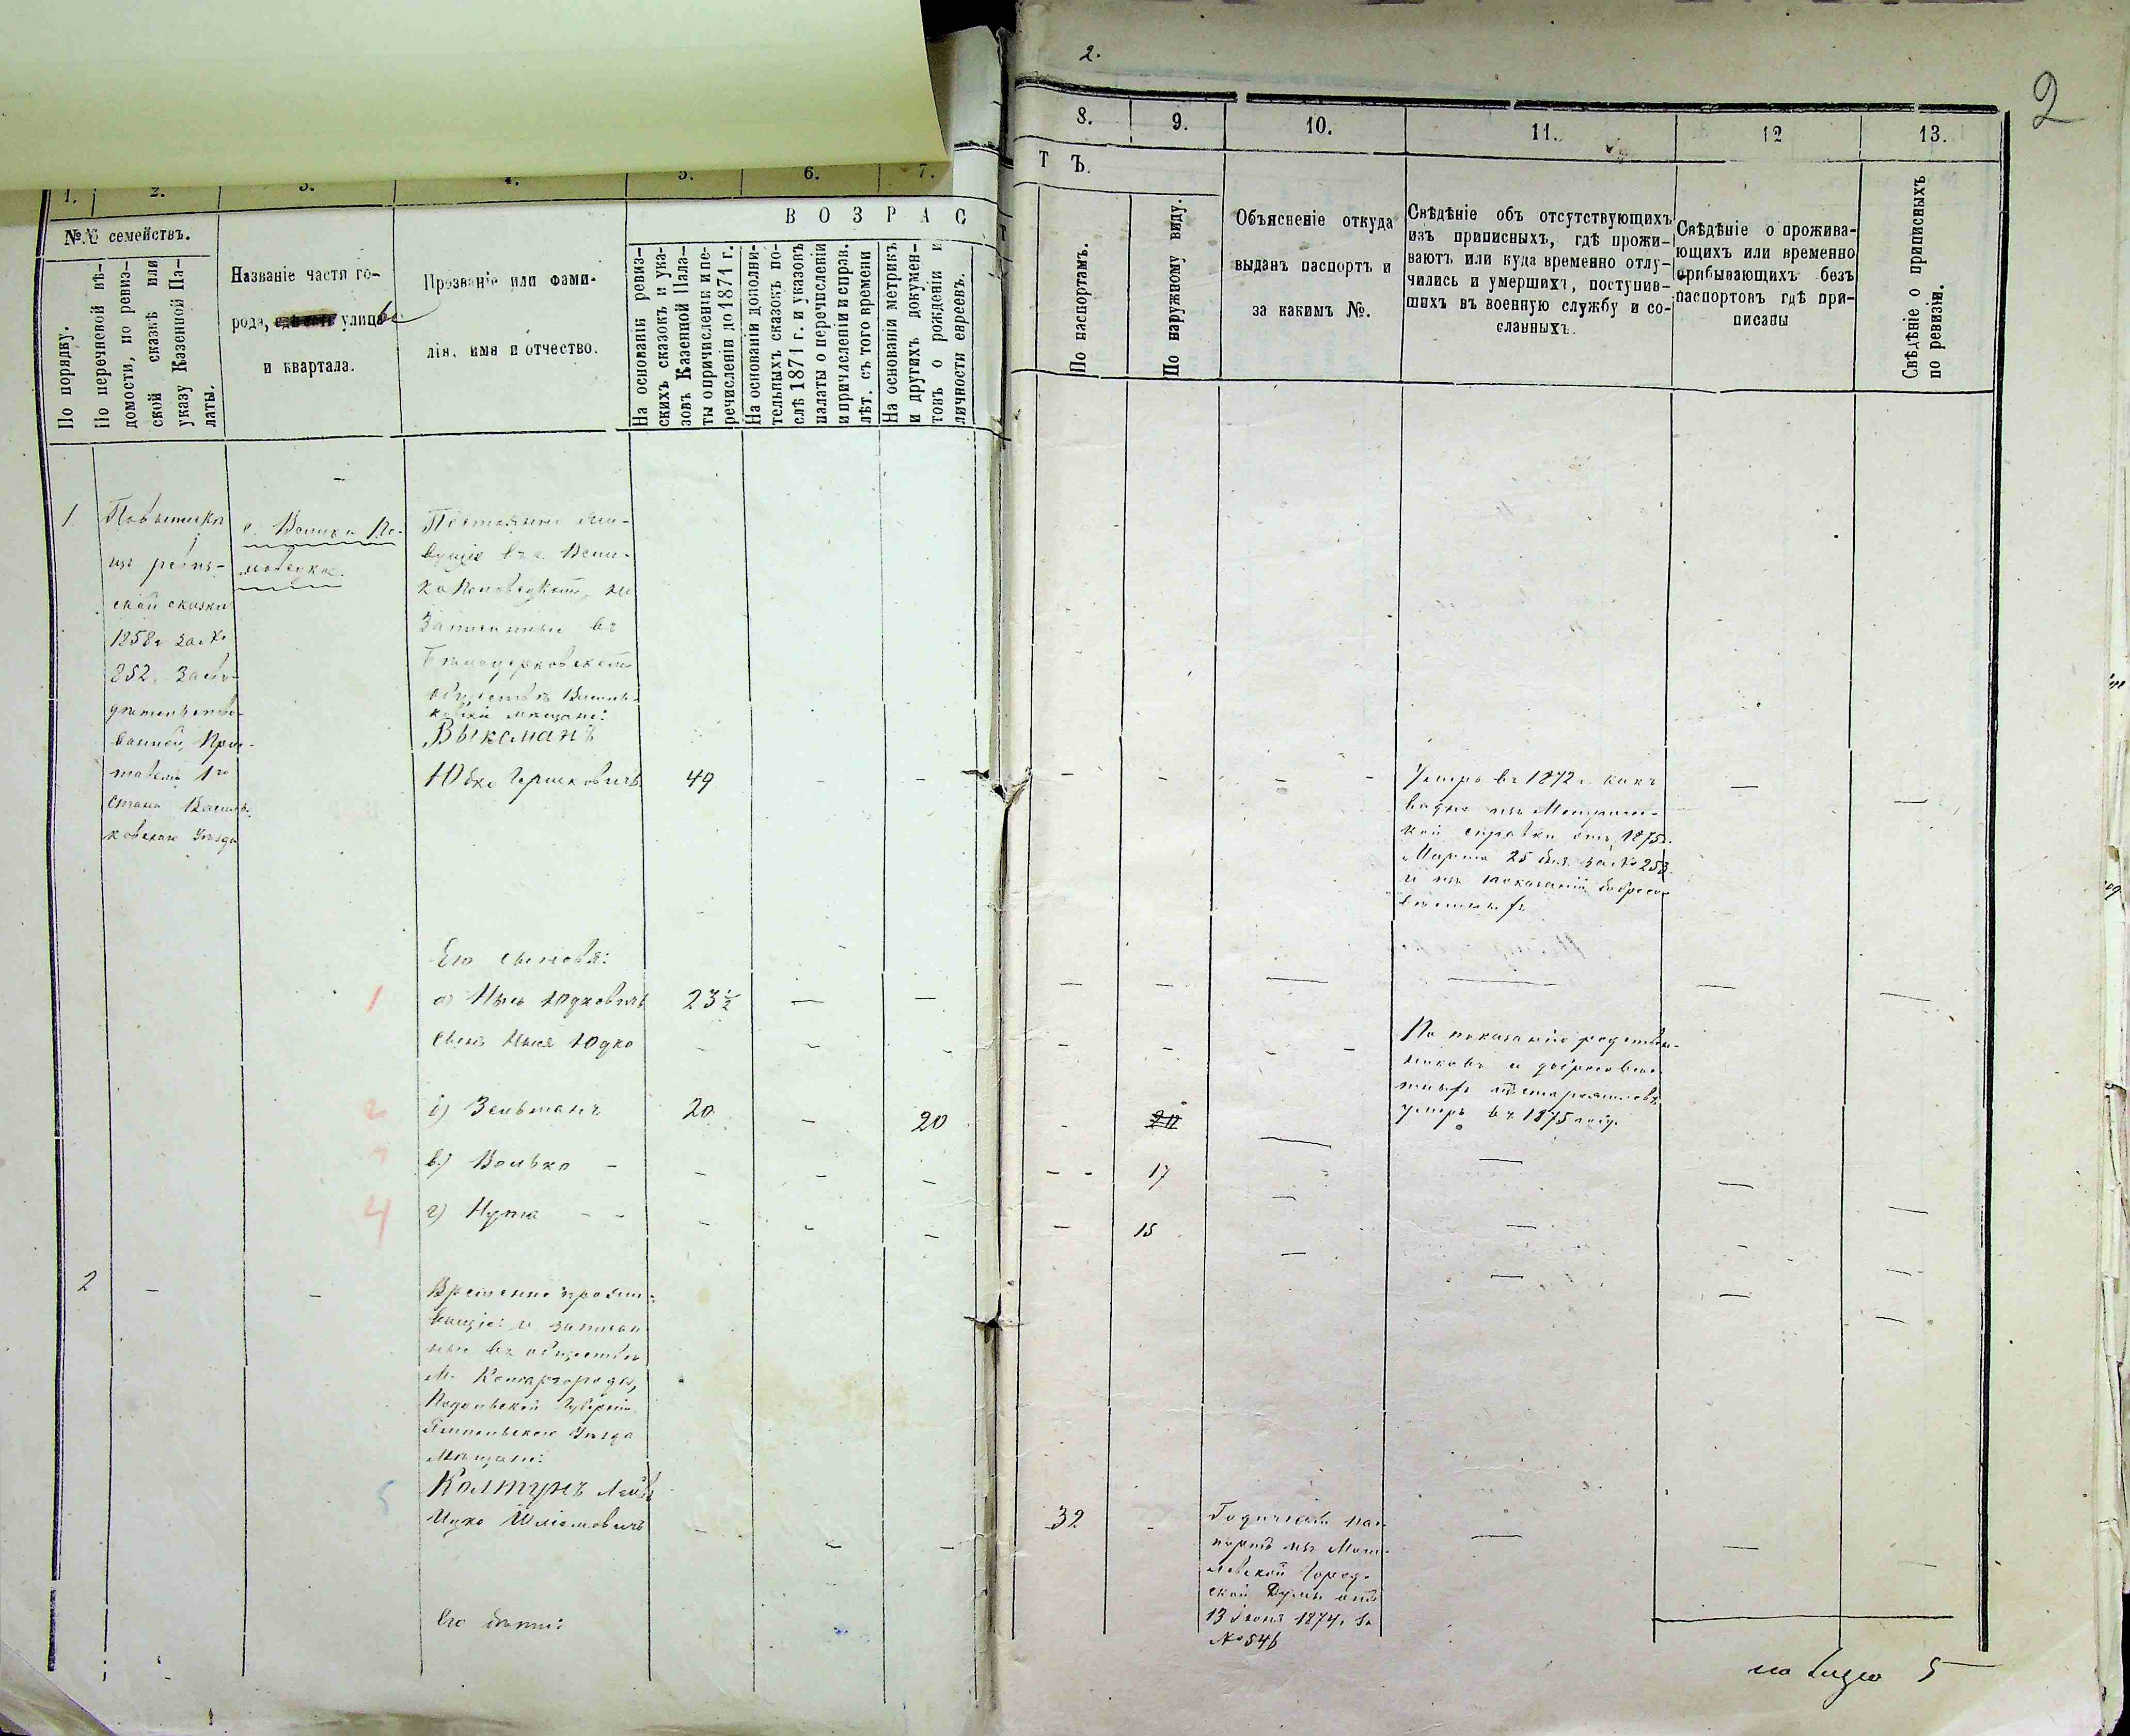 2.
2
1. 2. 3. 4. 5. 6. 7.
8. 9. 10. 11. 12 13.
№№ семействъ.
В О З Р А С
Т Ъ.
По порядку.
По перечневой вѣ-
домости, по ревиз-
ской сказкѣ или
указу Казенной Па-
латы.
Названіе части го-
рода, улицы
и квартала.
Прозваніе или фами-
лія, имя и отчество.
На основаніи ревиз-
скихъ сказокъ и ука-
зовъ Казенной Пала-
ты о причисленіи и пе-
речисленіи до 1871 г.
На основаніи дополни-
тельныхъ сказокъ по-
слѣ 1871 г. и указовъ
палаты о перечисленіи
и причисленіи и справ.
лѣт. съ того времени
На основаніи метрикъ
и другихъ докумен-
товъ о рожденіи и
личности евреевъ.
По паспортамъ.
По наружному виду.
Объясненіе откуда
выданъ паспортъ и
за какимъ №.
Свѣдѣніе объ отсутствующихъ
изъ приписныхъ, гдѣ прожи-
ваютъ или куда временно отлу-
чились и умершихъ, поступив-
шихъ въ военную службу и со-
сланныхъ.
Свѣдѣніе о прожива-
ющихъ или временно
прибывающихъ безъ
паспортовъ гдѣ при-
писаны
Свѣдѣніе о приписныхъ
по ревизіи.
1.
изъ ревиз-
ской сказки
1858 г. за №
852. Засви-
дѣтельство-
ванной, При-
ставомъ 1го
Стана Василь-
ковскаго Уѣзда
Постоянно жи-
вущіе въ с. Вели-
ко Половецкомъ, но
Записанные въ
Бѣлоцерковскомъ
обществѣ Василь-
ковскіе мѣщане:
Выксманъ
Юдко Гершковичъ 49 — —
— — — — Умеръ въ 1872 г. какъ — —
видно изъ Метричес-
кой справки отъ 1875 г.
Марта 25 дня за № 253
и изъ показаній добросо-
вѣстныхъ
Его сыновья:
1 а) Нысь Юдковичъ 23½ — —
— — — — — —
сынъ Ныся Юдко — — —
— — — — По показанію родствен-
никовъ и добросовѣс-
тныхъ
умеръ въ 1875 году.
2 б) Зельманъ 20 — 20
- 20 —
в) Волько - — — —
- - 17 — — —
4 г) Нута - - — — —
— 15 — — —
2 — — Временно прожи-
вающіе и записан-
ные въ обществѣ
М. Комаргорода,
Подольской Губерніи
Ямпольскаго Уѣзда
Мѣщане:
5 Колтунъ Лейб
Ицко Шліомовичъ — — —
32 - Годичный пас- — — —
портъ изъ Моги-
левской Город-
ской Думы отъ
13 Іюня 1874 г. за
№ 546
Его дѣти:
на лицо 5